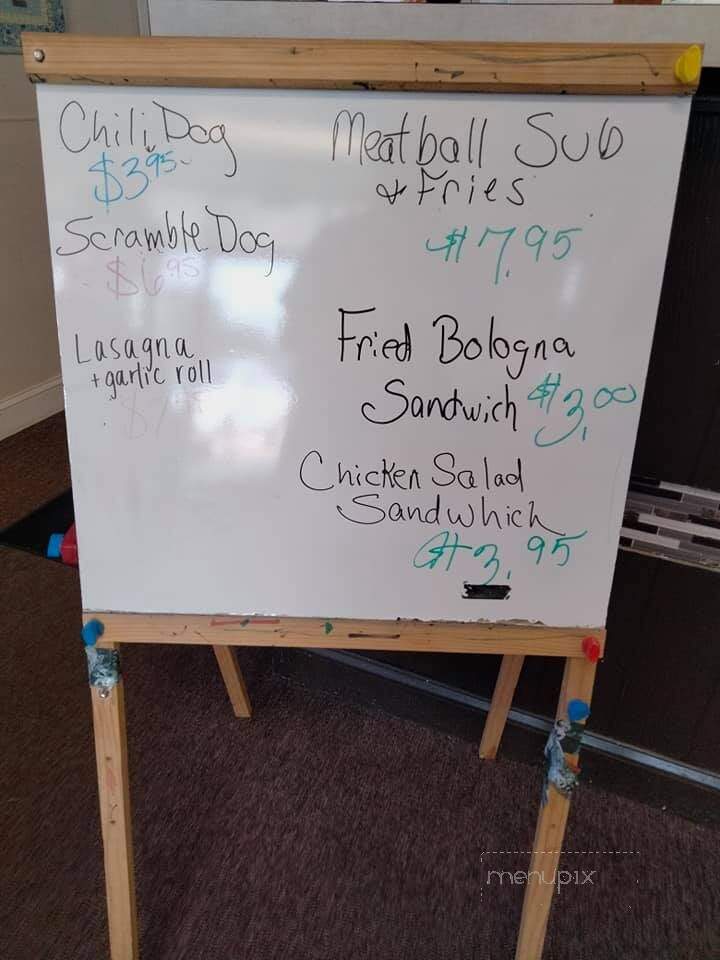 Chili Dog
$3.95
Scramble Dog
$6.95
Lasagna
+ garlic roll
Meatball Sub
& Fries
$7.95
Fried Bologna
Sandwich $3.00
Chicken Salad
Sandwhich
$3.95
menupix